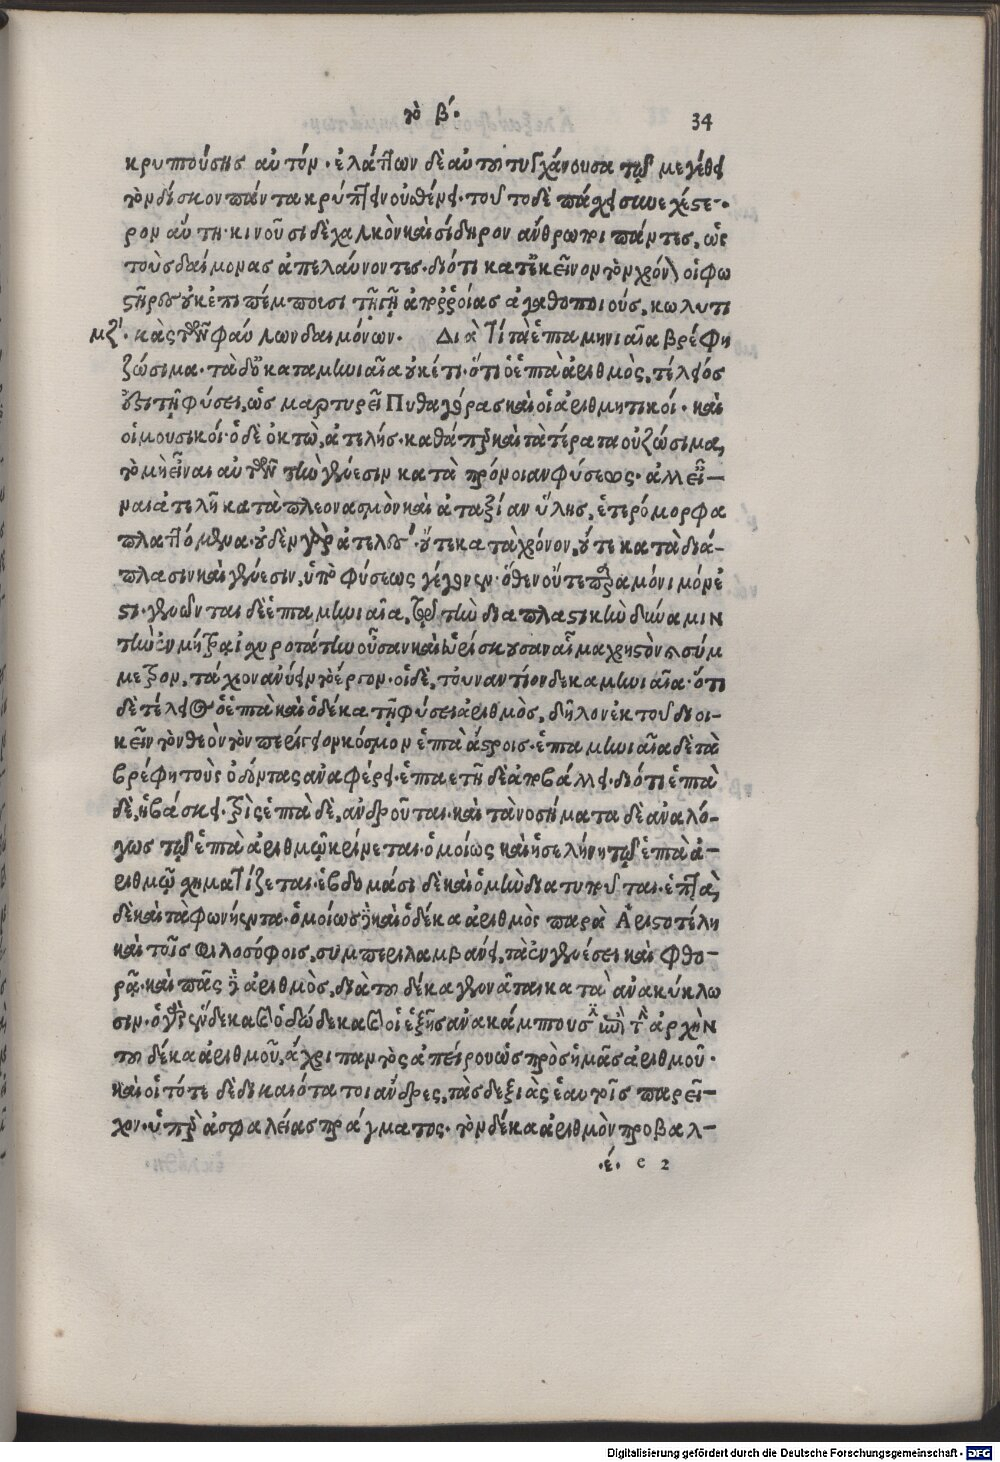 τὸ β΄.
34
κρυπτούσης αὐτόν· ἐλάττων δὲ αὐτη τυγχάνουσα τῷ μεγέθει
τὸν δίσκον πάντα κρύπτειν οὐ σθένει· τοῦτο δὲ πάσχει συνεχέστε-
ρον αὕτη· κινοῦσι δὲ χαλκὸν καὶ σίδηρον ἄνθρωποι πάντες, ὡς
τοὺς δαίμονας ἀπελαύνοντες· διότι κατ' ἐκεῖνον τὸν χρόνον οἱ φω
στῆρες οὐκ ἐπιπέμπουσι τῇ γῇ ἀπορροίας ἀγαθοποιούς, κωλυτι
μζ΄. κὰς τῶν φαύλων δαιμόνων. Διὰ τί τὰ ἑπταμηνιαῖα βρέφη
ζώσιμα· τὰ δὲ ὀκταμηνιαῖα οὐκέτι· ὅτι ὁ ἑπτὰ ἀριθμὸς, τέλειός
ἐστι τῇ φύσει, ὡς μαρτυρεῖ Πυθαγόρας καὶ οἱ ἀριθμητικοί· καὶ
οἱ μουσικοί· ὁ δὲ ὀκτὼ, ἀτελής· καθάπερ καὶ τὰ τέρατα οὐ ζώσιμα,
τὸ μὴ εἶναι αὐτῶν τὴν γένεσιν κατὰ πρόνοιαν φύσεως· ἀλλ' εἶ-
ναι ἀτελῆ κατὰ πλεονασμὸν καὶ ἀταξίαν ὕλης, ἑτερόμορφα
πλαττόμενα· οὐδὲν γὰρ ἀτελὲς· οὔτε κατὰ χρόνον, οὔτε κατὰ διά-
πλασιν καὶ γένεσιν, ὑπὸ φύσεως γέγονεν· ὅθεν οὔτε παραμόνιμόν ἐ
στι· γεννῶνται δὲ ἑπταμηνιαῖα, διὰ τὸ τὴν διαπλαστικὴν δύναμιν
τὴν ἐν μήτρᾳ ἰσχυροτάτην οὖσαν καὶ εὑρίσκουσαν αἷμα χρηστὸν καὶ σύμ
μετρον, τάχιον ἀνύειν τὸ ἔργον· οἱ δὲ, τοὐναντίον δεκαμηνιαῖα· ὅτι
δὲ τέλειος ὁ ἑπτὰ καὶ ὁ δέκα τῇ φύσει ἀριθμὸς, δῆλον ἐκ τοῦ διοι-
κεῖν τὸν θεὸν τὸν περίγειον κόσμον ἑπτὰ ἄστροις· ἑπταμηνιαῖα δὲ τὰ
βρέφη τοὺς ὀδόντας ἀναφέρει· ἑπταετῆ δὲ ἀποβάλλει· διότι ἑπτὰ
δὲ, ἡβάσκει· τρὶς ἑπτὰ δὲ, ἀνδροῦται· καὶ τὰ νοσήματα δὲ ἀναλό-
γως τῷ ἑπτὰ ἀριθμῷ κρίνεται· ὁμοίως καὶ ἡ σελήνη τῷ ἑπτὰ ἀ-
ριθμῷ σχηματίζεται· ἑβδομάσι δὲ καὶ ὁ μὴν διατυποῦται· ἑπτὰ
δὲ καὶ τὰ φωνήεντα· ὁμοίως δὲ καὶ ὁ δέκα ἀριθμὸς παρὰ Ἀριστοτέλη
καὶ τοῖς φιλοσόφοις, συμπεριλαμβάνει, τὰ ἐν γενέσει καὶ φθο-
ρᾷ· καὶ πᾶς δὲ ἀριθμὸς, διὰ τοῦ δέκα γεννᾶται κατὰ ἀνακύκλω
σιν· ὁ γὰρ ἕνδεκα καὶ ὁ δώδεκα καὶ οἱ ἑξῆς ἀνακάμπτουσιν ἐπὶ τὴν ἀρχὴν
τοῦ δέκα ἀριθμοῦ, ἄχρι παντὸς ἀπείρου ὡς πρὸς ἡμᾶς ἀριθμοῦ·
καὶ οἱ τότε δὲ δικαιότατοι ἄνδρες, τὰς δεξιὰς ἑαυτοῖς παρεῖ-
χον· ὑπὲρ ἀσφαλείας πράγματος· τὸν δέκα ἀριθμὸν προβαλ-
·ἐ· e 2
Digitalisierung gefördert durch die Deutsche Forschungsgemeinschaft - DFG